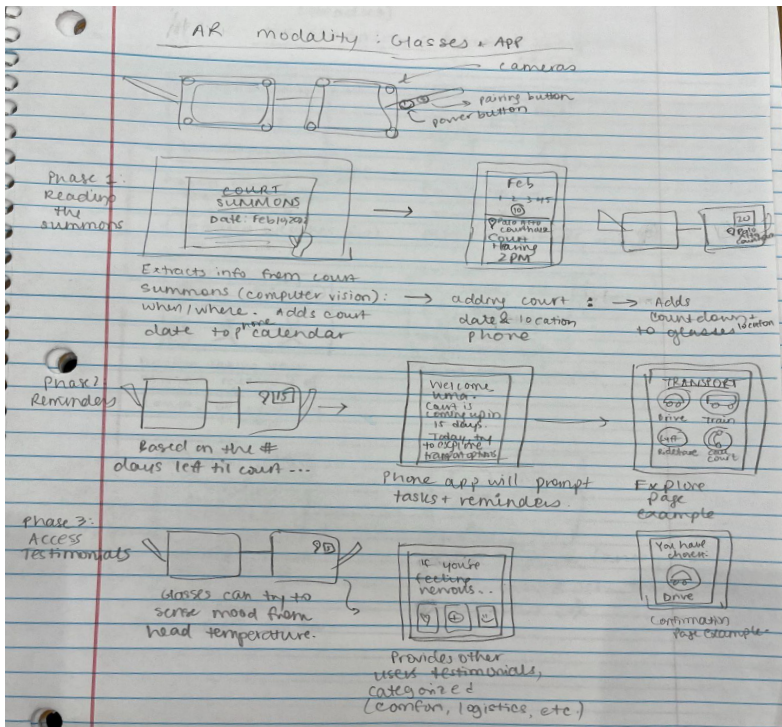 AR modality: Glasses + App
cameras
pairing button
power button
Phase 1:
Reading
the
summons
COURT
SUMMONS
Date: Feb 19, 202
Feb
1 2 3 4 5
Palo Alto
Courthouse
Court
Hearing
2 PM
20
Palo Alto
Courthouse
Extracts info from court
summons (computer vision):
when/where. Adds court
date to phone calendar
adding court
date & location
phone
:
Adds
countdown +
location
to glasses
Phase 2:
Reminders
15
Based on the #
days left til court ...
Welcome
Uma.
Court is
coming up in
15 days.
Today, try
to explore
transport options
Phone app will prompt
tasks + reminders.
TRANSPORT
Drive Train
Lyft
Rideshare Call court
Explore
page
example
Phase 3:
Access
Testimonials
Glasses can try to
sense mood from
head temperature.
If you're
feeling
nervous...
Provides other
users testimonials,
categorized
(comfort, logistics, etc.)
You have
chosen:
Drive
Confirmation
Page example